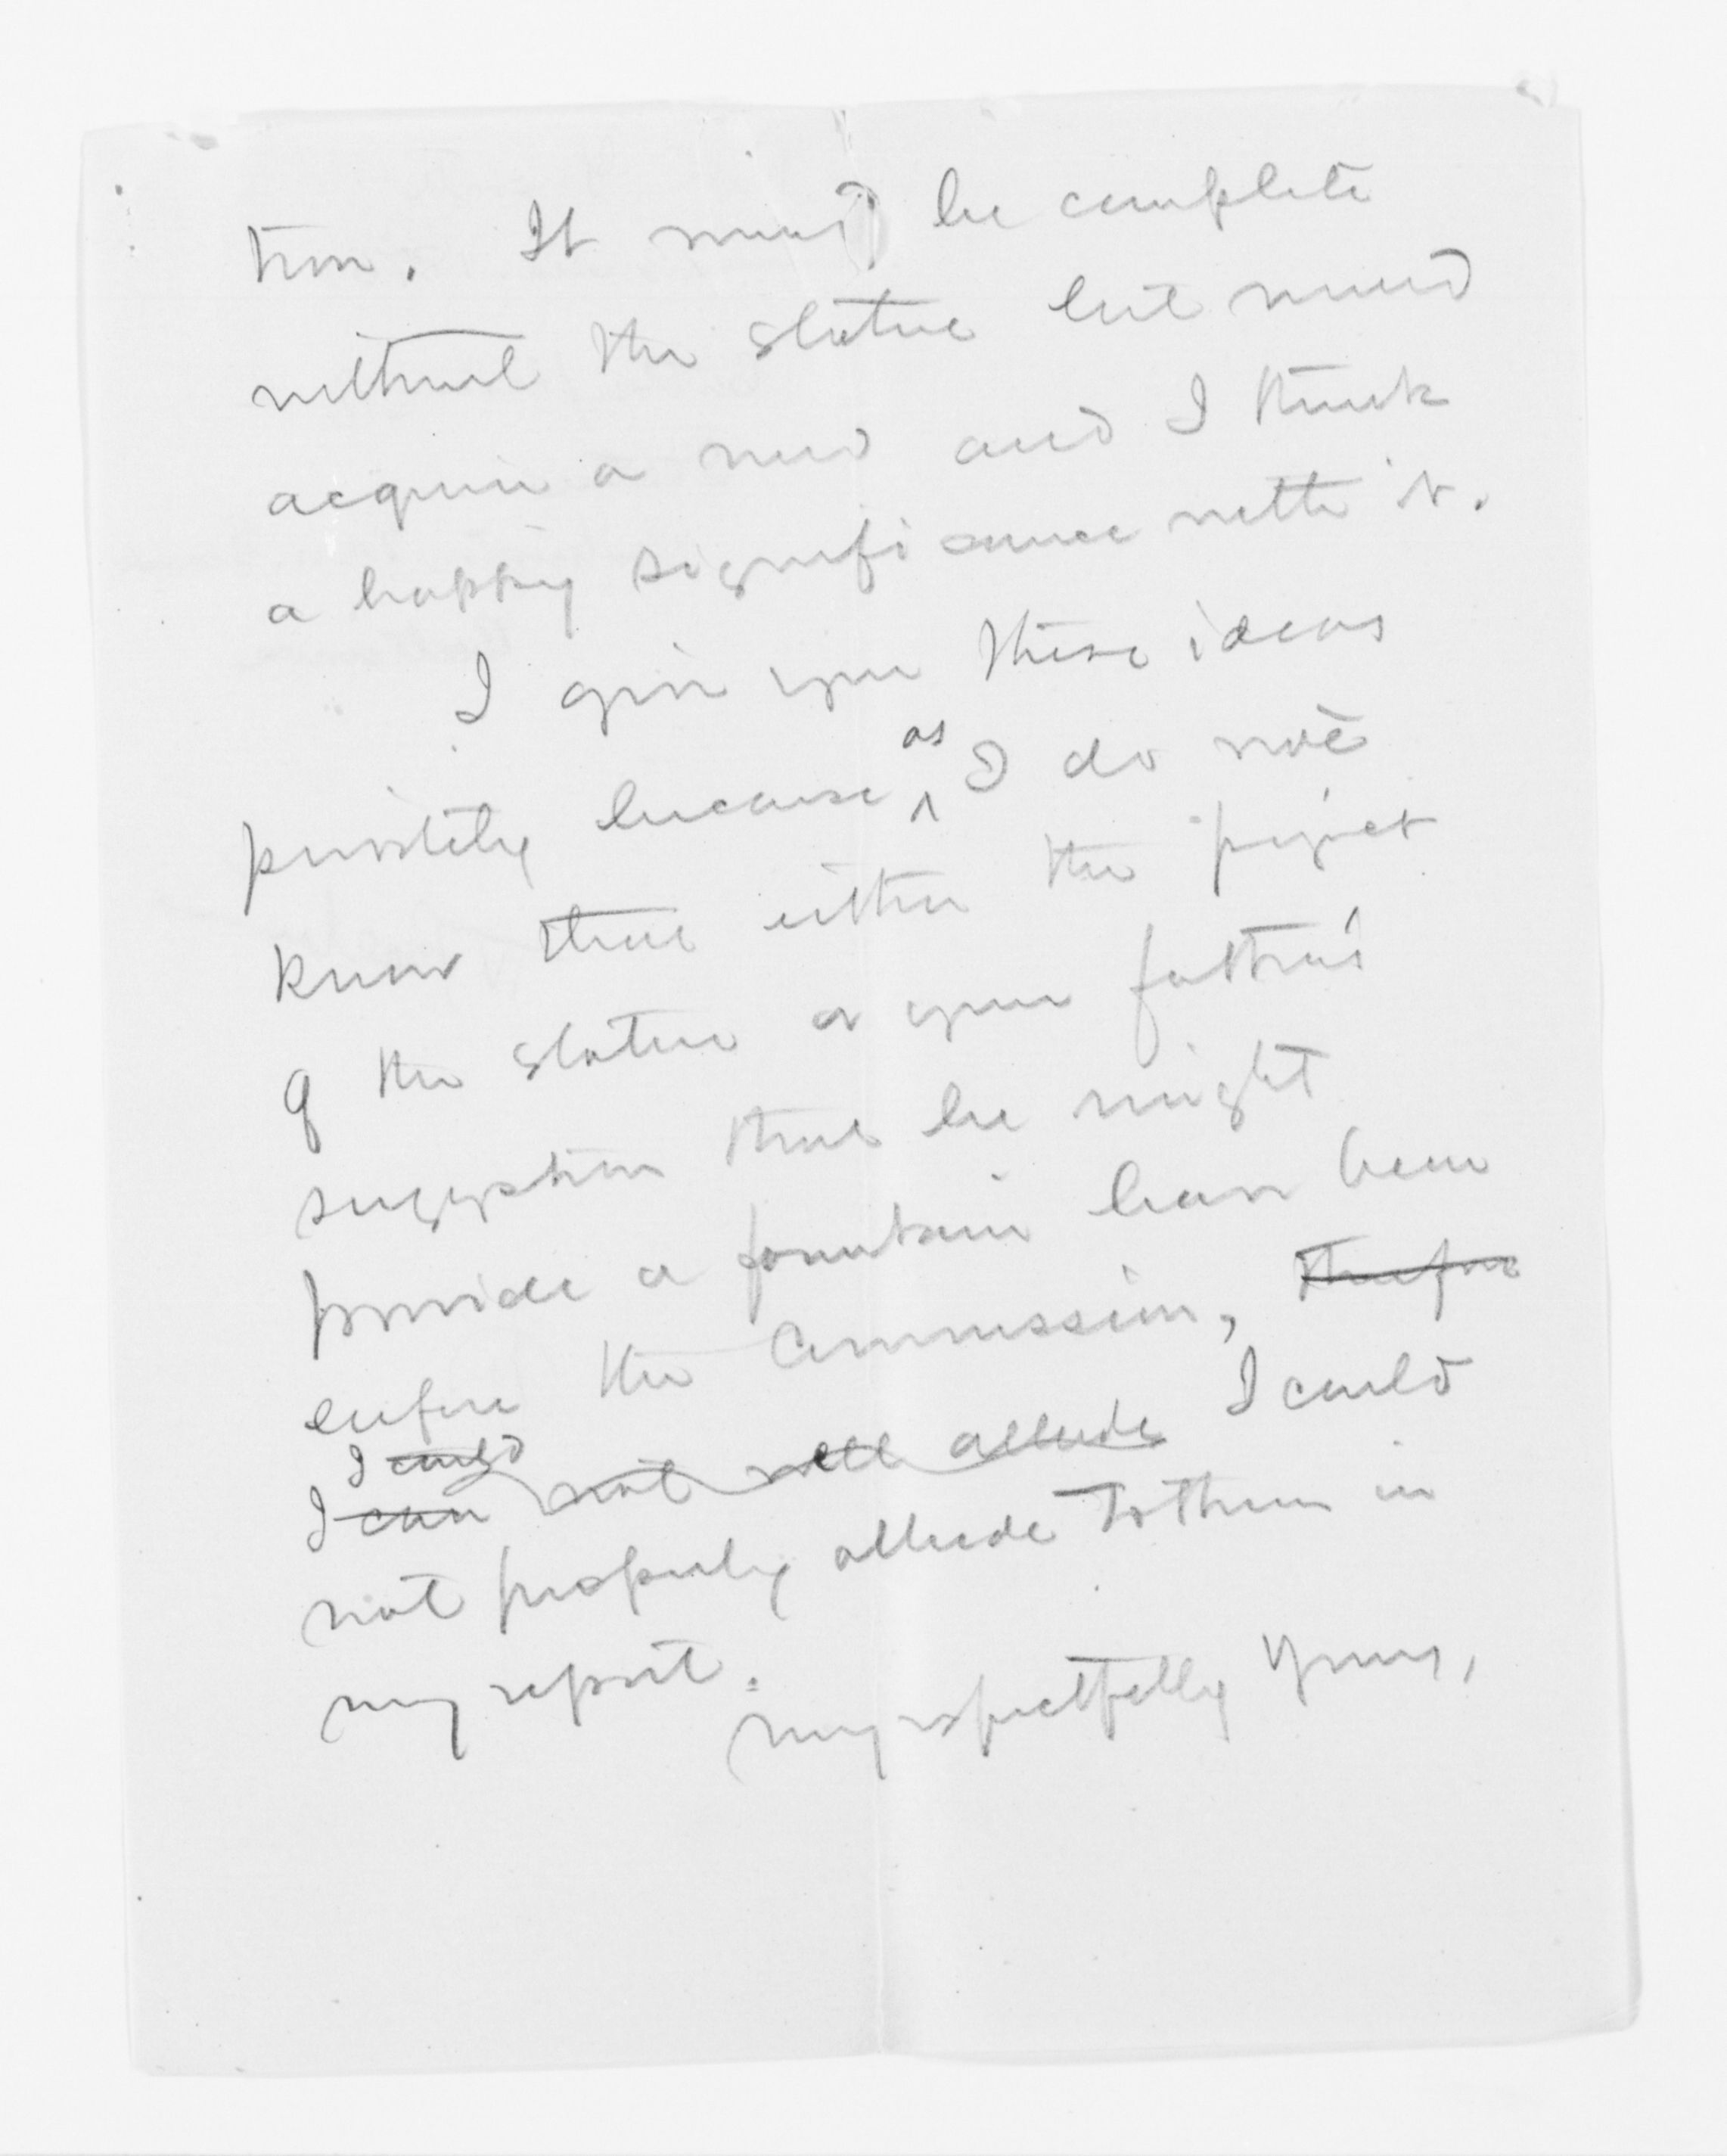 tion. It must be complete
without the statue but would
acquire a new and I think
a happy significance with it.
I give you these ideas
privately because ^as I do not
know that either the project
of the statue or your father's
suggestion that he might
provide a fountain have been
before the Commission, therefore
I could
I can not well allude I could
not properly allude to them in
my report.
Very respectfully Yours,